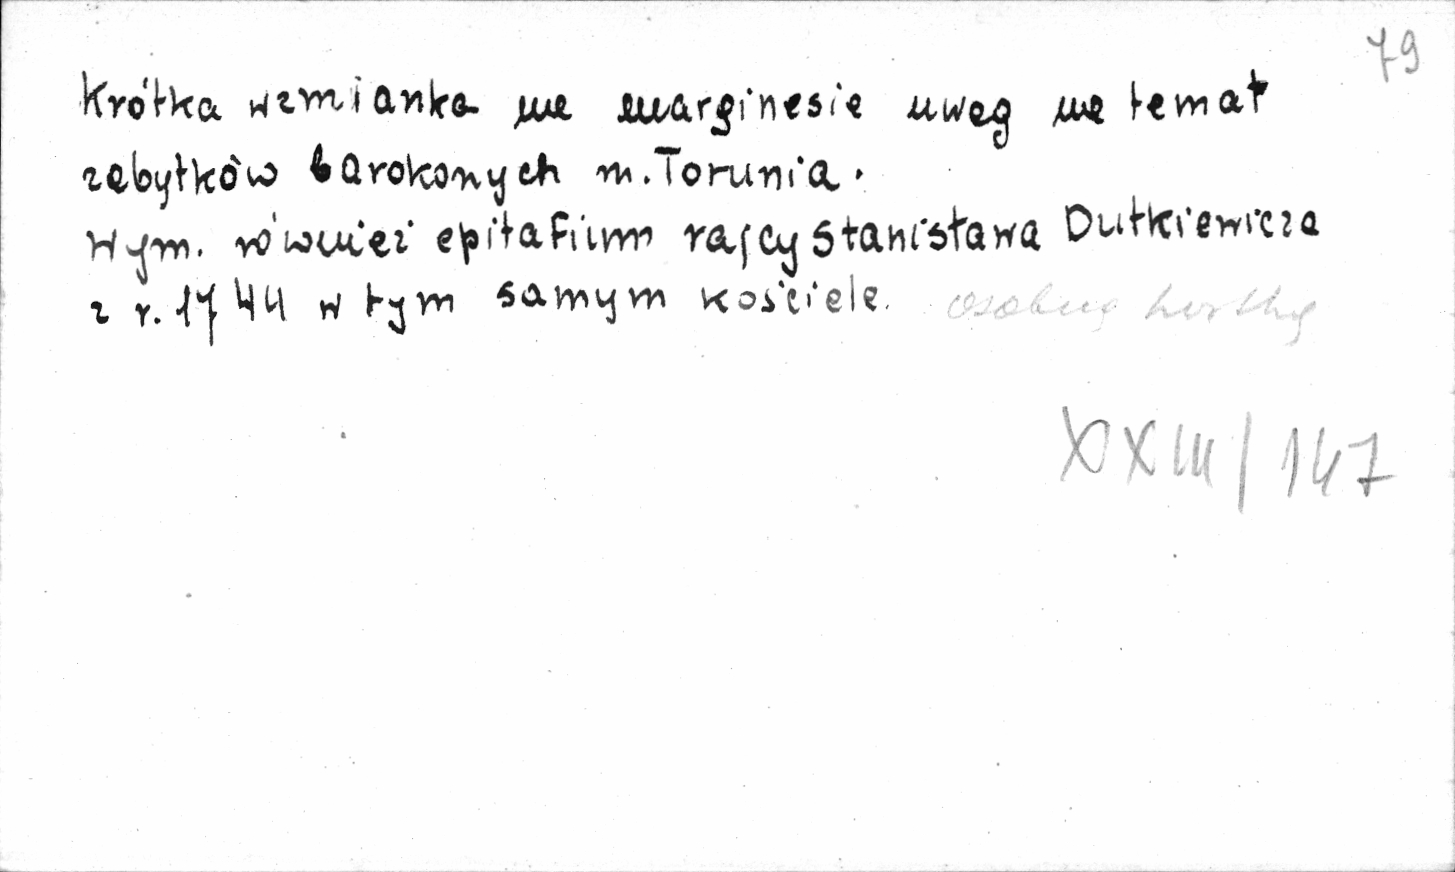 79
Krótka wzmianka na marginesie uwag na temat
zabytków barokowych m. Torunia.
Wym. również epitafium rajcy Stanisława Dutkiewicza
z r. 1744 w tym samym kościele. osobną kartkę
XXIII/147